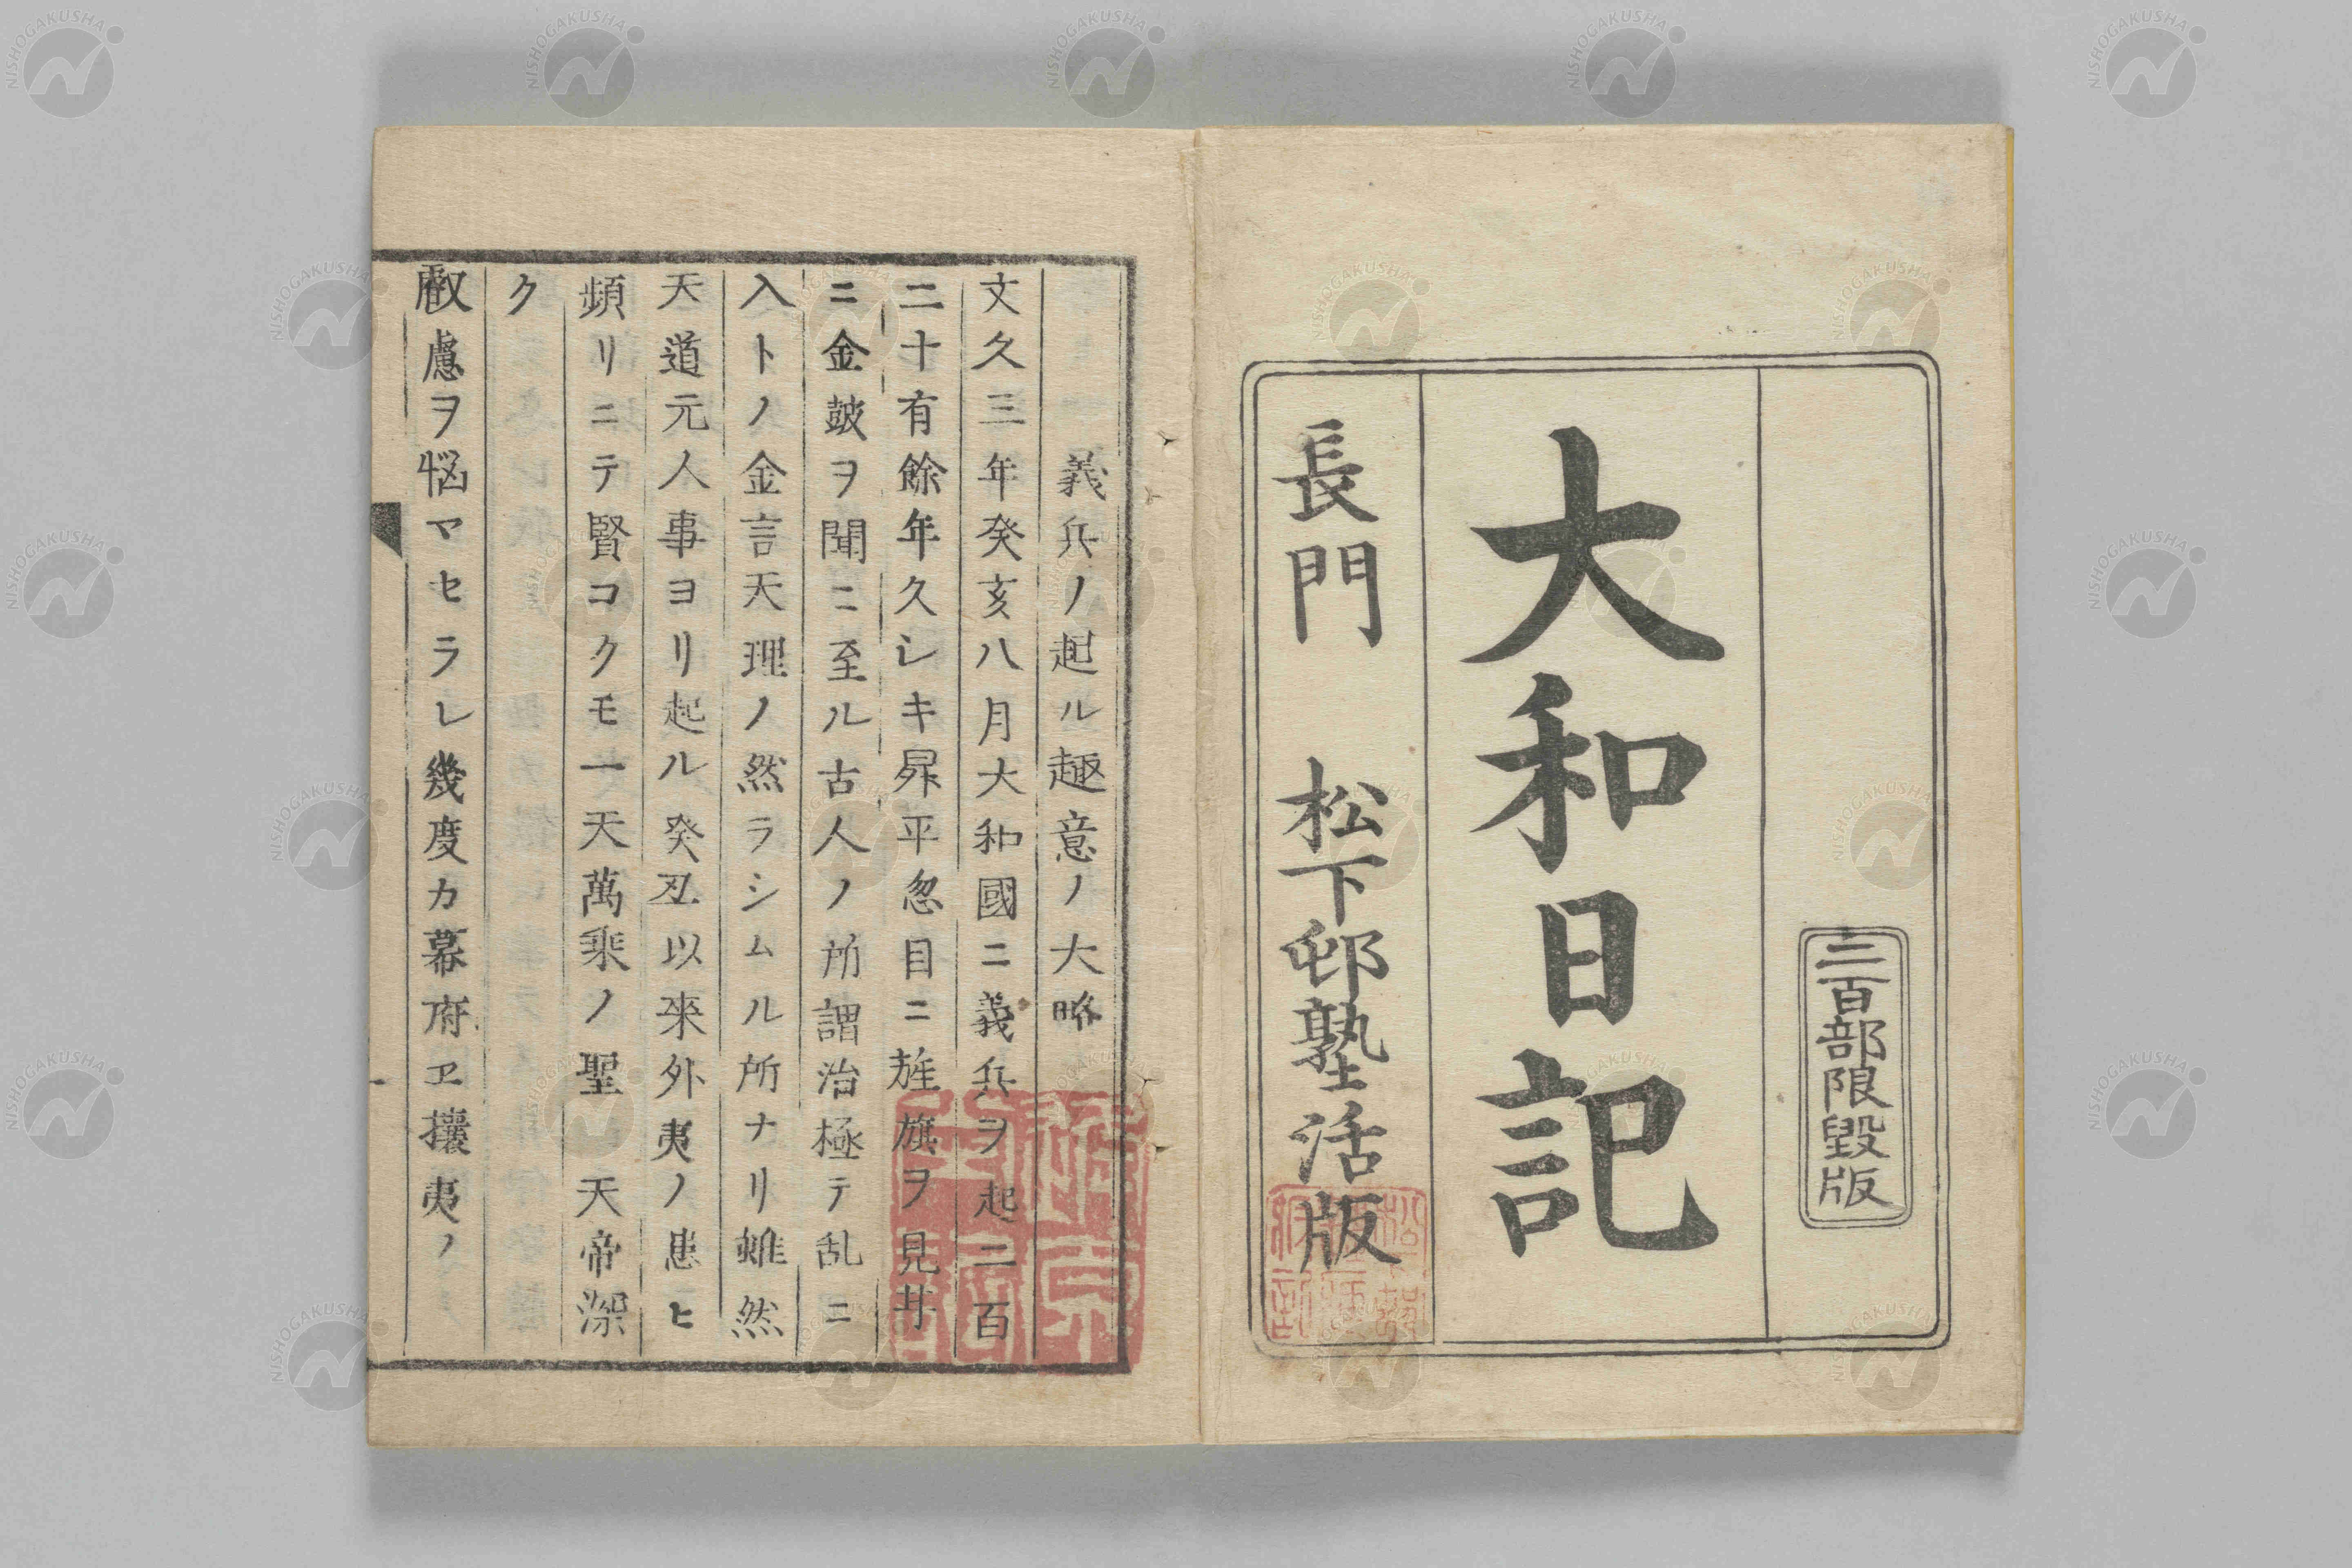 三百部限毀版
大和日記
長門　松下邨塾活版
義兵ノ起ル趣意ノ大略
文久三年癸亥八月大和國ニ義兵ヲ起二百
二十有餘年久レキ昇平忽目ニ旌旗ヲ見耳
ニ金鼓ヲ聞ニ至ル古人ノ所謂治極テ乱ニ
入トノ金言天理ノ然ラシムル所ナリ雖然
天道元人事ヨリ起ル癸丑以來外夷ノ患ヒ
頻リニテ賢コクモ一天萬乘ノ聖天帝深
ク
叡慮ヲ悩マセラレ幾度カ幕府ヱ攘夷ノ
NISHOGAKUSHA